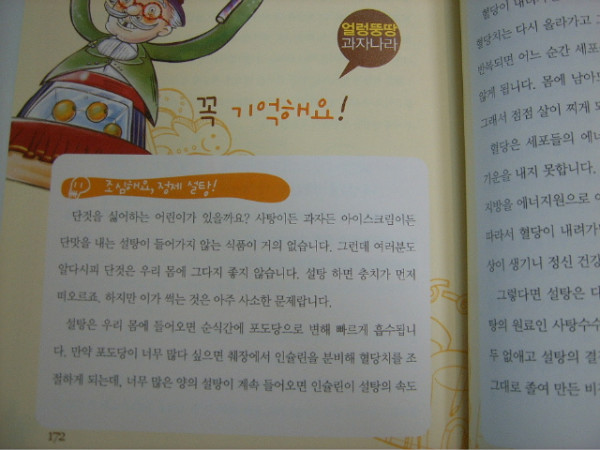 얼렁뚱땅
과자나라
꼭 기억해요!
조심해요, 정제 설탕!
단것을 싫어하는 어린이가 있을까요? 사탕이든 과자든 아이스크림이든
단맛을 내는 설탕이 들어가지 않는 식품이 거의 없습니다. 그런데 여러분도
알다시피 단것은 우리 몸에 그다지 좋지 않습니다. 설탕 하면 충치가 먼저
떠오르죠. 하지만 이가 썩는 것은 아주 사소한 문제랍니다.
설탕은 우리 몸에 들어오면 순식간에 포도당으로 변해 빠르게 흡수됩니
다. 만약 포도당이 너무 많다 싶으면 췌장에서 인슐린을 분비해 혈당치를 조
절하게 되는데, 너무 많은 양의 설탕이 계속 들어오면 인슐린이 설탕의 속도
172
혈당이 내려가
혈당치는 다시 올라가고 그
반복되면 어느 순간 세포
않게 됩니다. 몸에 남아도
그래서 점점 살이 찌게 되
혈당은 세포들의 에너
기운을 내지 못합니다.
지방을 에너지원으로 이
따라서 혈당이 내려가
상이 생기니 정신 건강
그렇다면 설탕은 다
탕의 원료인 사탕수수
두 없애고 설탕의 결
그대로 졸여 만든 비